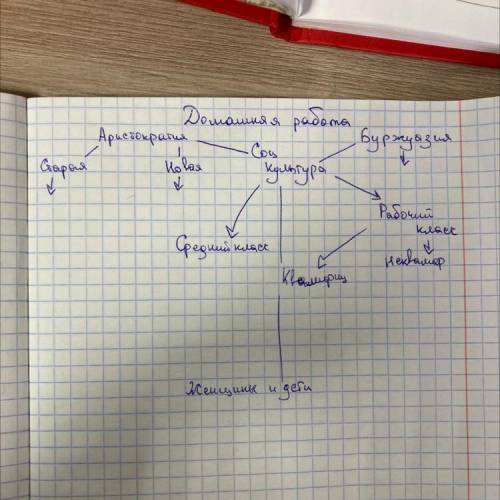 Домашняя работа
Аристократия
Соц
культура
Буржуазия
Старая
Новая
Рабочий
класс
Средний класс
Неквалиф
Квалифиц
Женщины и дети